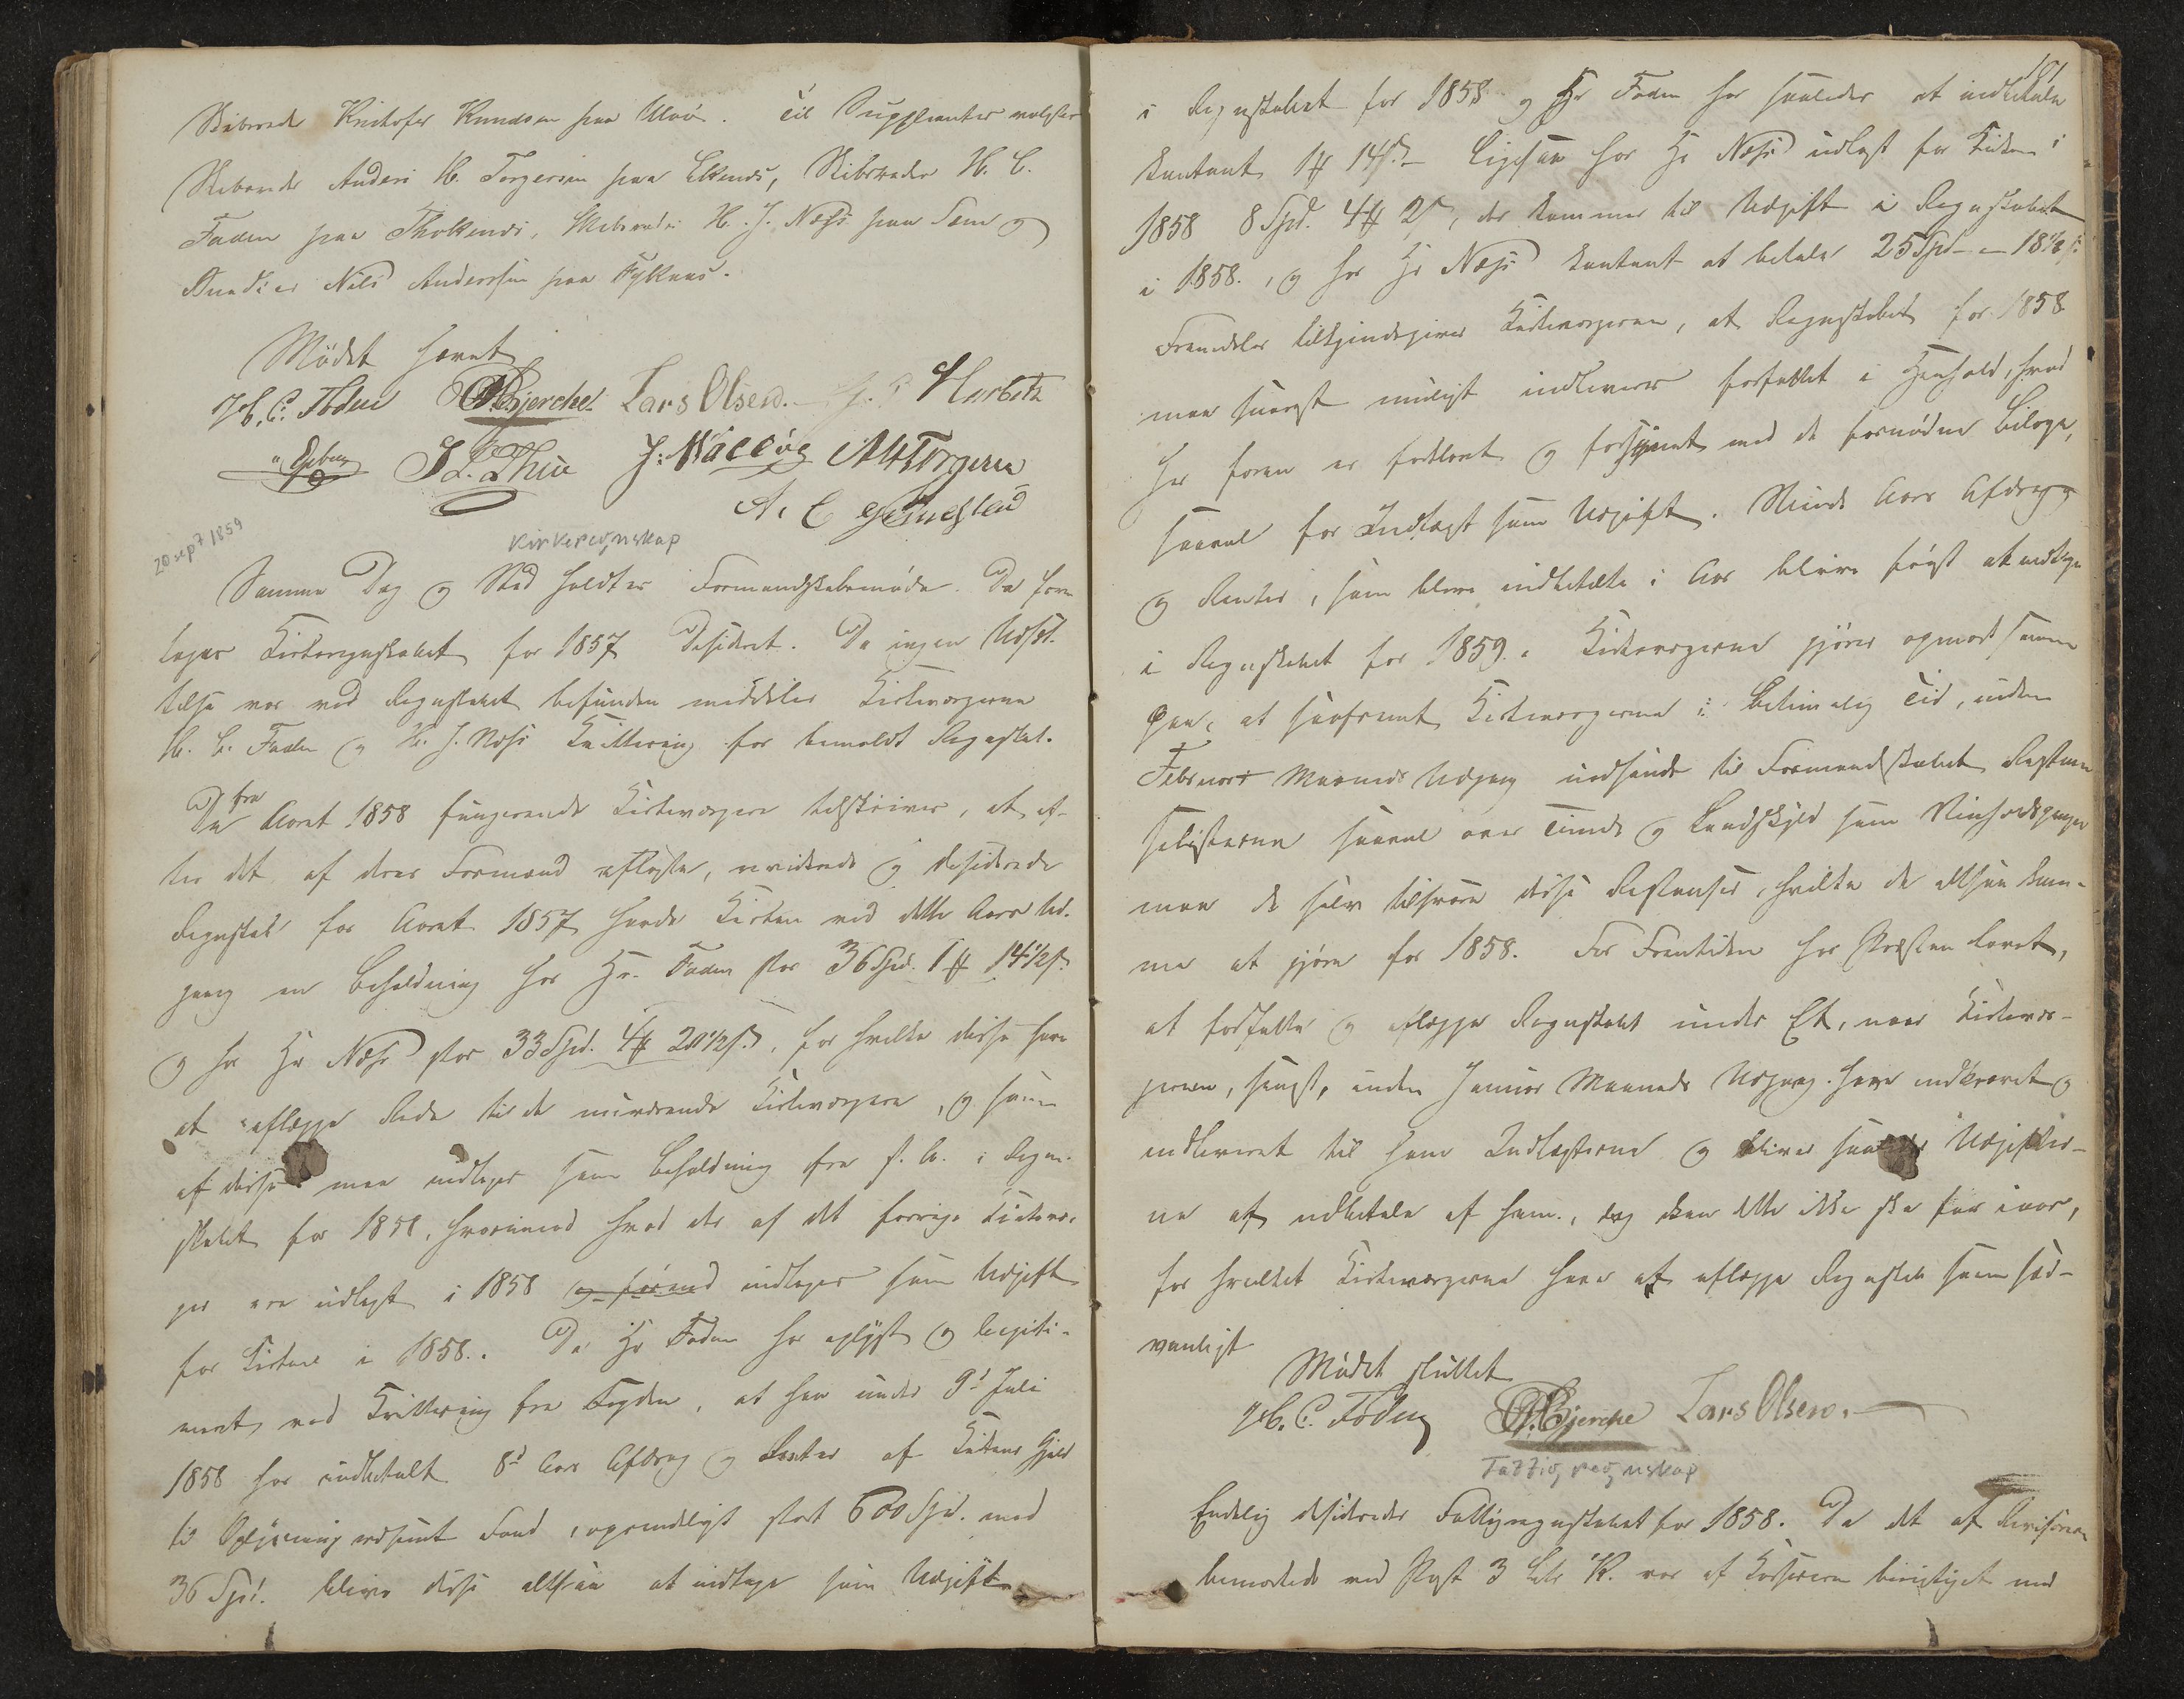 Skibsreder Kristofer Knudsen paa Ulvø. Til Supplianter valgtes
Skibsreder Anders M. Torgersen paa Ekenes, Skibsreder H. C.
Foden paa Thokenes, Skibsreder H. J. Næss paa Sem og
Gaardbr. Nils Anderssen paa Fyllnæs.
Mödet hævet
H. C. Foden OBjerche. Lars Olsen. Herbetz
J. L. Thue J. Valløg AMTorgersen
A. C. Gjernestad
20 sept 1859
Kirkeregnskap
Samme Dag og Sted holdtes Formandskabsmöde. Da fore
tages Kirkeregnskabet for 1857 Desideret. Da ingen Udsæt
telse var ved Regnskabet befunden meddeles Kirkeværgerne
H. C. Foden og H. J. Næss Qvittering for bemeldt Regnskab.
De for Aaret 1858 fungerende Kirkeværgere tilskrives, at ef-
ter det af deres Formænd aflagte, reviderede og desiderede
Regnskab for Aaret 1857 havde Kirken ved dette Aars Ud-
gang en Beholdning hos Hr. Foden stor 36 Spd. 1 ₰ 14½ s.
og hos Hr Næss stor 33 Spd. 4 ₰ 20½ s., for hvilke disse have
at aflægge Rede til de nuværende Kirkeværgere, og som
af disse maa indtages som Beholdning fra f. A. i Regn-
skabet for 1858, hvorimod hvad der af det forrige Kirkevær-
ger ere udlagt i 1858 og forend indtages som Udgift
for Kirken i 1858. Da Hr Foden har oplyst og legiti-
meret ved Qvittering fra Fogden, at han under 9de Juli
1858 har indbetalt 8de Aars Afdrag og Renter af Kirkens Gjæld
til Oplysningsvæsenets Fond, oprindeligt stort 600 Spd. med
36 Spd. blive disse altsaa at indtage som Udgift
181
i Regnskabet for 1858 og Hr Foden har saaledes at indbetale
kontant 1 ₰ 14 s. Ligesaa har Hr Næss udlagt for Kirken i
1858 8 Spd. 4 ₰ 2 s, der kommer til Udgift i Regnskabet
i 1858., og har Hr Næss kontant at betale 25 Spd - - 18½ s.
Fremdeles tilkjendegives Kirkeværgerne, at Regnskabet for 1858
maa snarest muligt indleveres forfattet i Henhold, hvad
her foran er forklaret og forsynet med de fornødne Bilage,
saavel for Indtægt som Udgift. Niende Aars Afdrag
og Renter, som bleve indbetalte i Aar blive først at indtage
i Regnskabet for 1859. Kirkeværgerne gjøres opmærksomme
paa, at saafremt Kirkeværgerne i betimelig Tid, inden
Februar Maaneds Udgang indsende til Formandskabet Restance
listerne saavel over Tiende og Landskyld som
maa de selv tilsvare disse Restancer, hvilke de altsaa kom-
me at gjøre for 1858. For Fremtiden har Præsten lovet,
at forfatte og aflægge Regnskabet under Et, naar Kirkevær-
gerne, senest, inden Januar Maaneds Udgang have indkrævet og
indleveret til ham Indtægterne og bliver saaledes Udgifter-
ne at udbetale af ham, dog kan dette ikke ske for iaar,
for hvilket Kirkeværgerne have at aflægge Regnskab som sæd-
vanligt
Mödet sluttet
H. C. Foden OBjerche Lars Olsen.
Fattigregnskap
Endelig desideredes Fattigregnskabet for 1858. Da det af Revisoren
bemærkede ved Post 3 Litr K. var af Kassereren berigtiget med